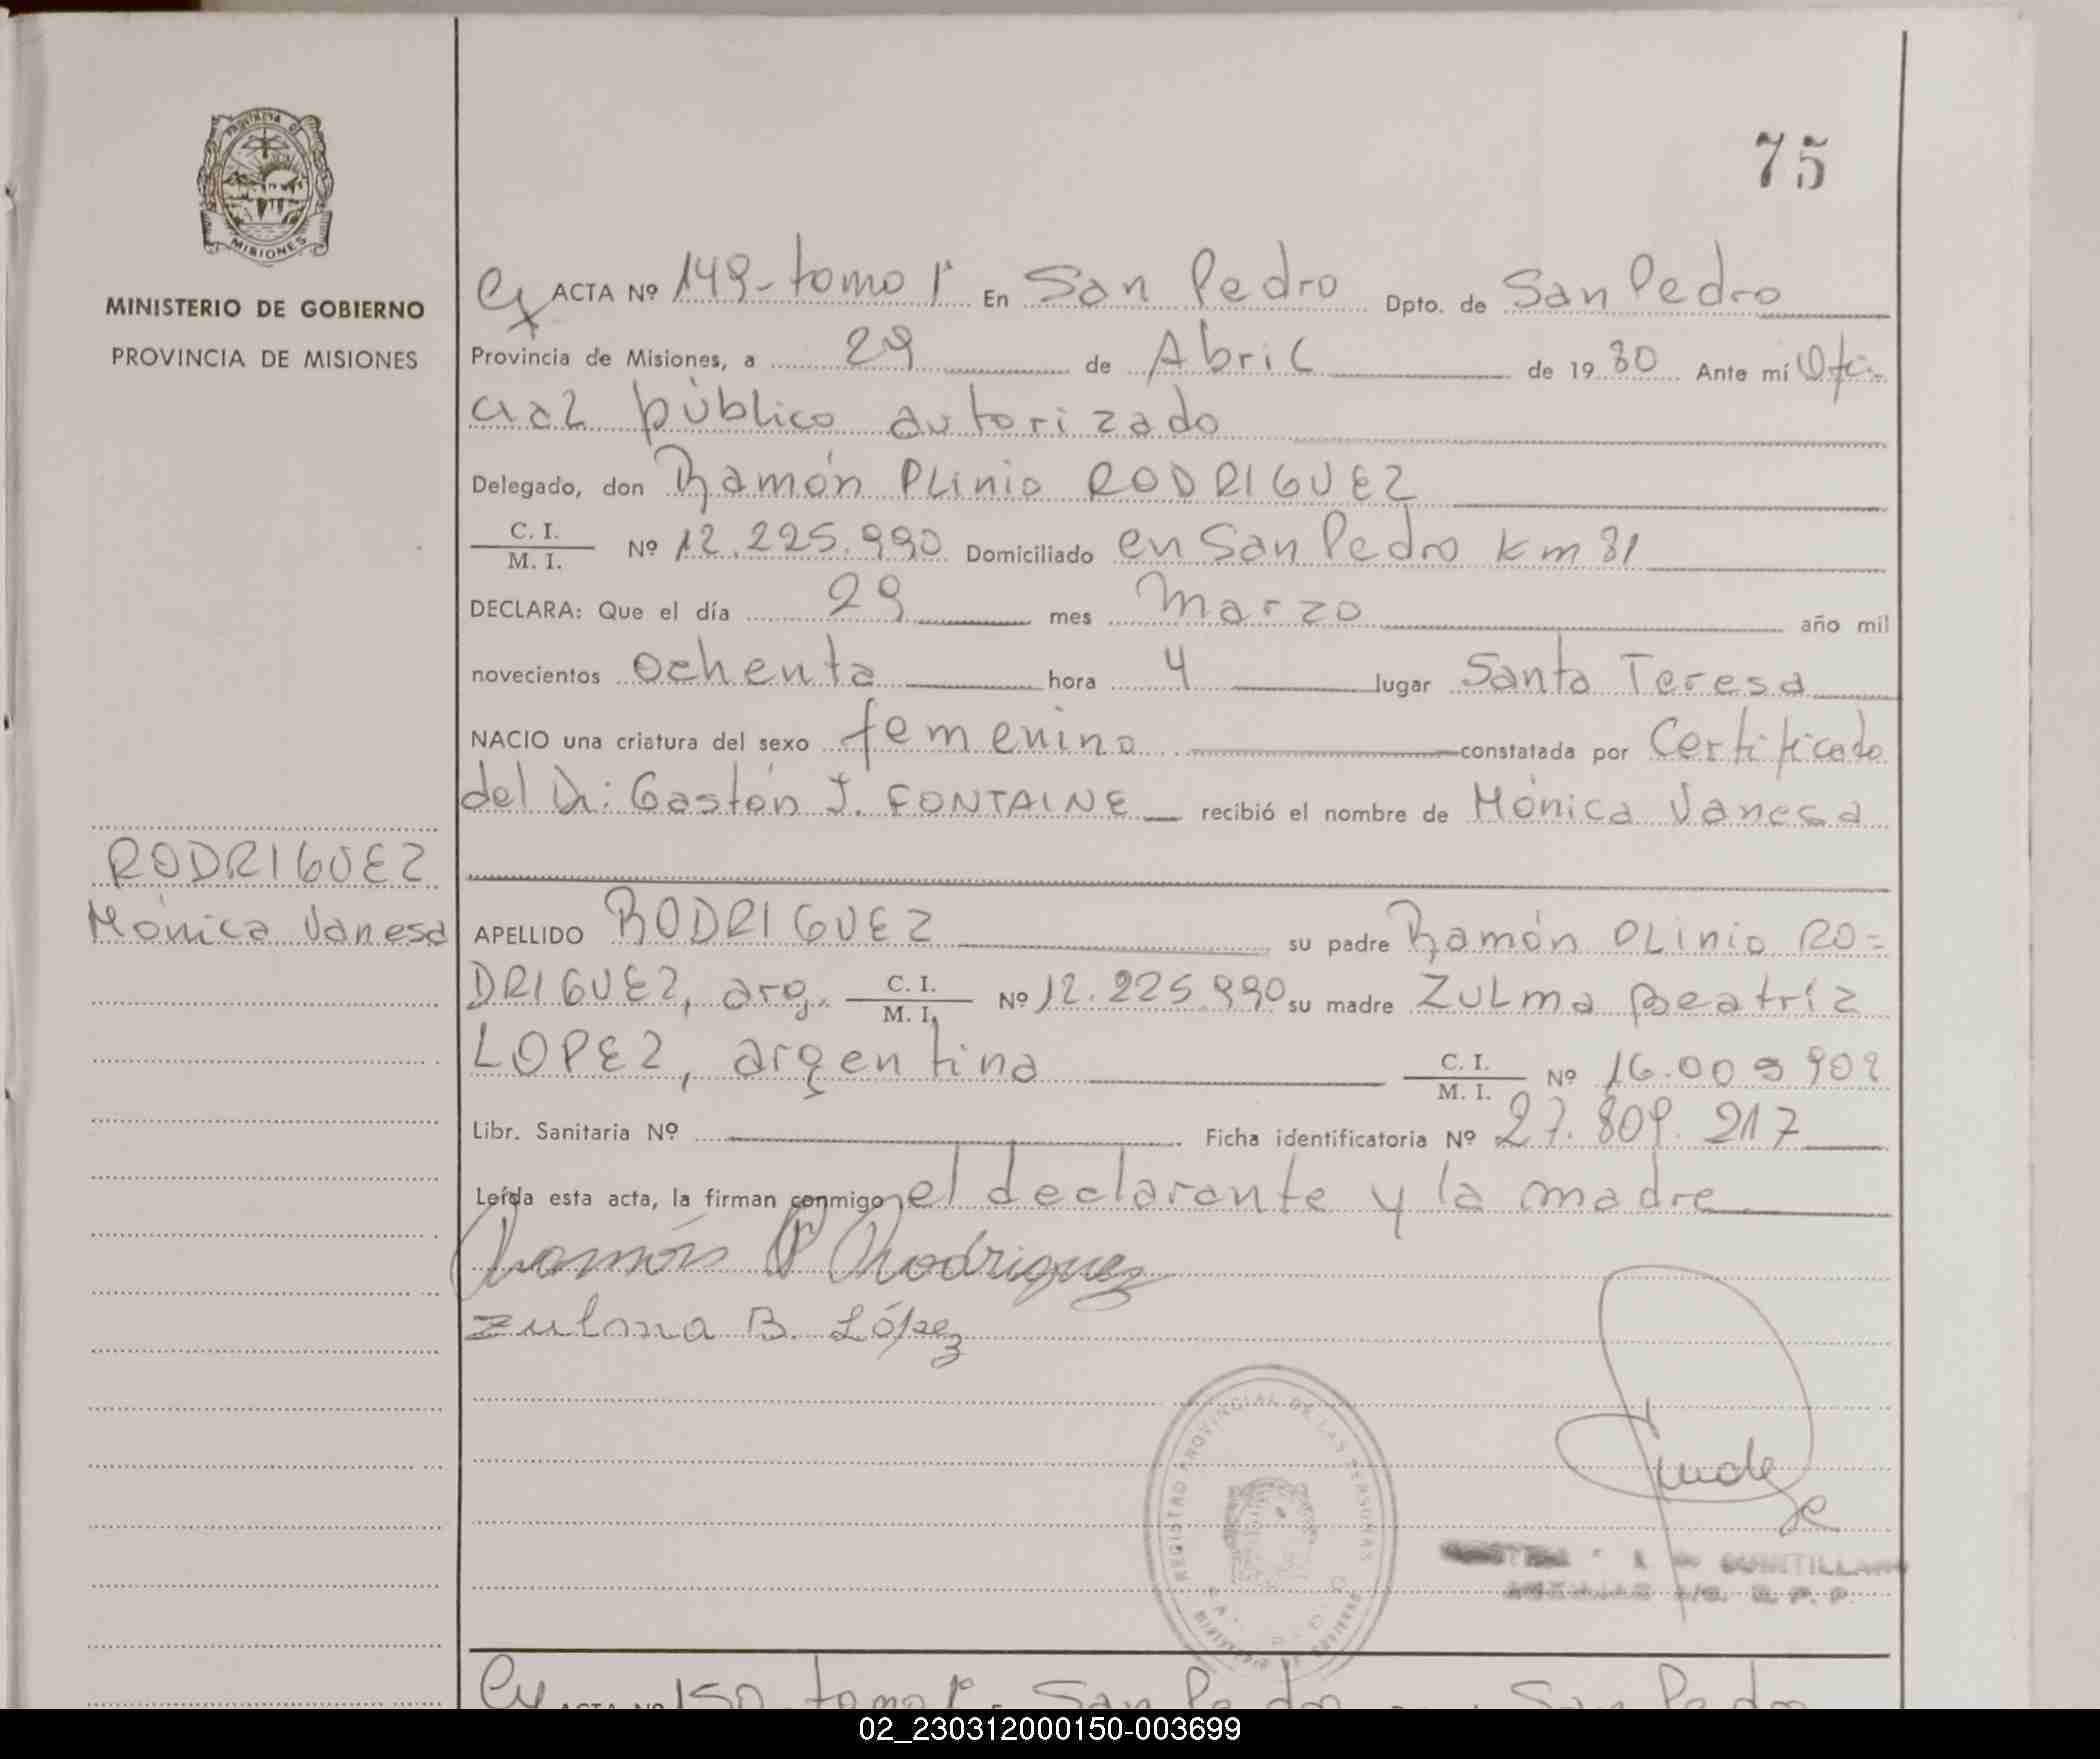 PROVINCIA DE
MISIONES
MINISTERIO DE GOBIERNO
PROVINCIA DE MISIONES
75
ACTA Nº 149-tomo 1º En San Pedro Dpto. de San Pedro
Provincia de Misiones, a 29 de Abril de 19 80 Ante mí Ofi-
cial público autorizado
Delegado, don Ramón PLinio RODRIGUEZ
C. I.
M. I.
Nº 12.225.990 Domiciliado en San Pedro Km 81
DECLARA: Que el día 29 mes Marzo año mil
novecientos ochenta hora 4 lugar Santa Teresa
NACIO una criatura del sexo femenino constatada por Certificado
del Dr: Gastón J. FONTAINE recibió el nombre de Mónica Vanesa
RODRIGUEZ
Mónica Vanesa
APELLIDO RODRIGUEZ su padre Ramón PLinio RO=
DRIGUEZ, arg. C. I.
M. I.
Nº 12.225.990 su madre ZULma Beatríz
LOPEZ, argentina C. I.
M. I.
Nº 16.009 902
Libr. Sanitaria Nº Ficha identificatoria Nº 27.809.217
Leída esta acta, la firman conmigo, el declarante y la madre
Ramón P Rodriguez
Zulma B. López
REGISTRO PROVINCIAL DE LAS PERSONAS
QUINTILLAN
R. P. P.
ACTA Nº 150 tomo 1º En San Pedro San Pedro
02_230312000150-003699